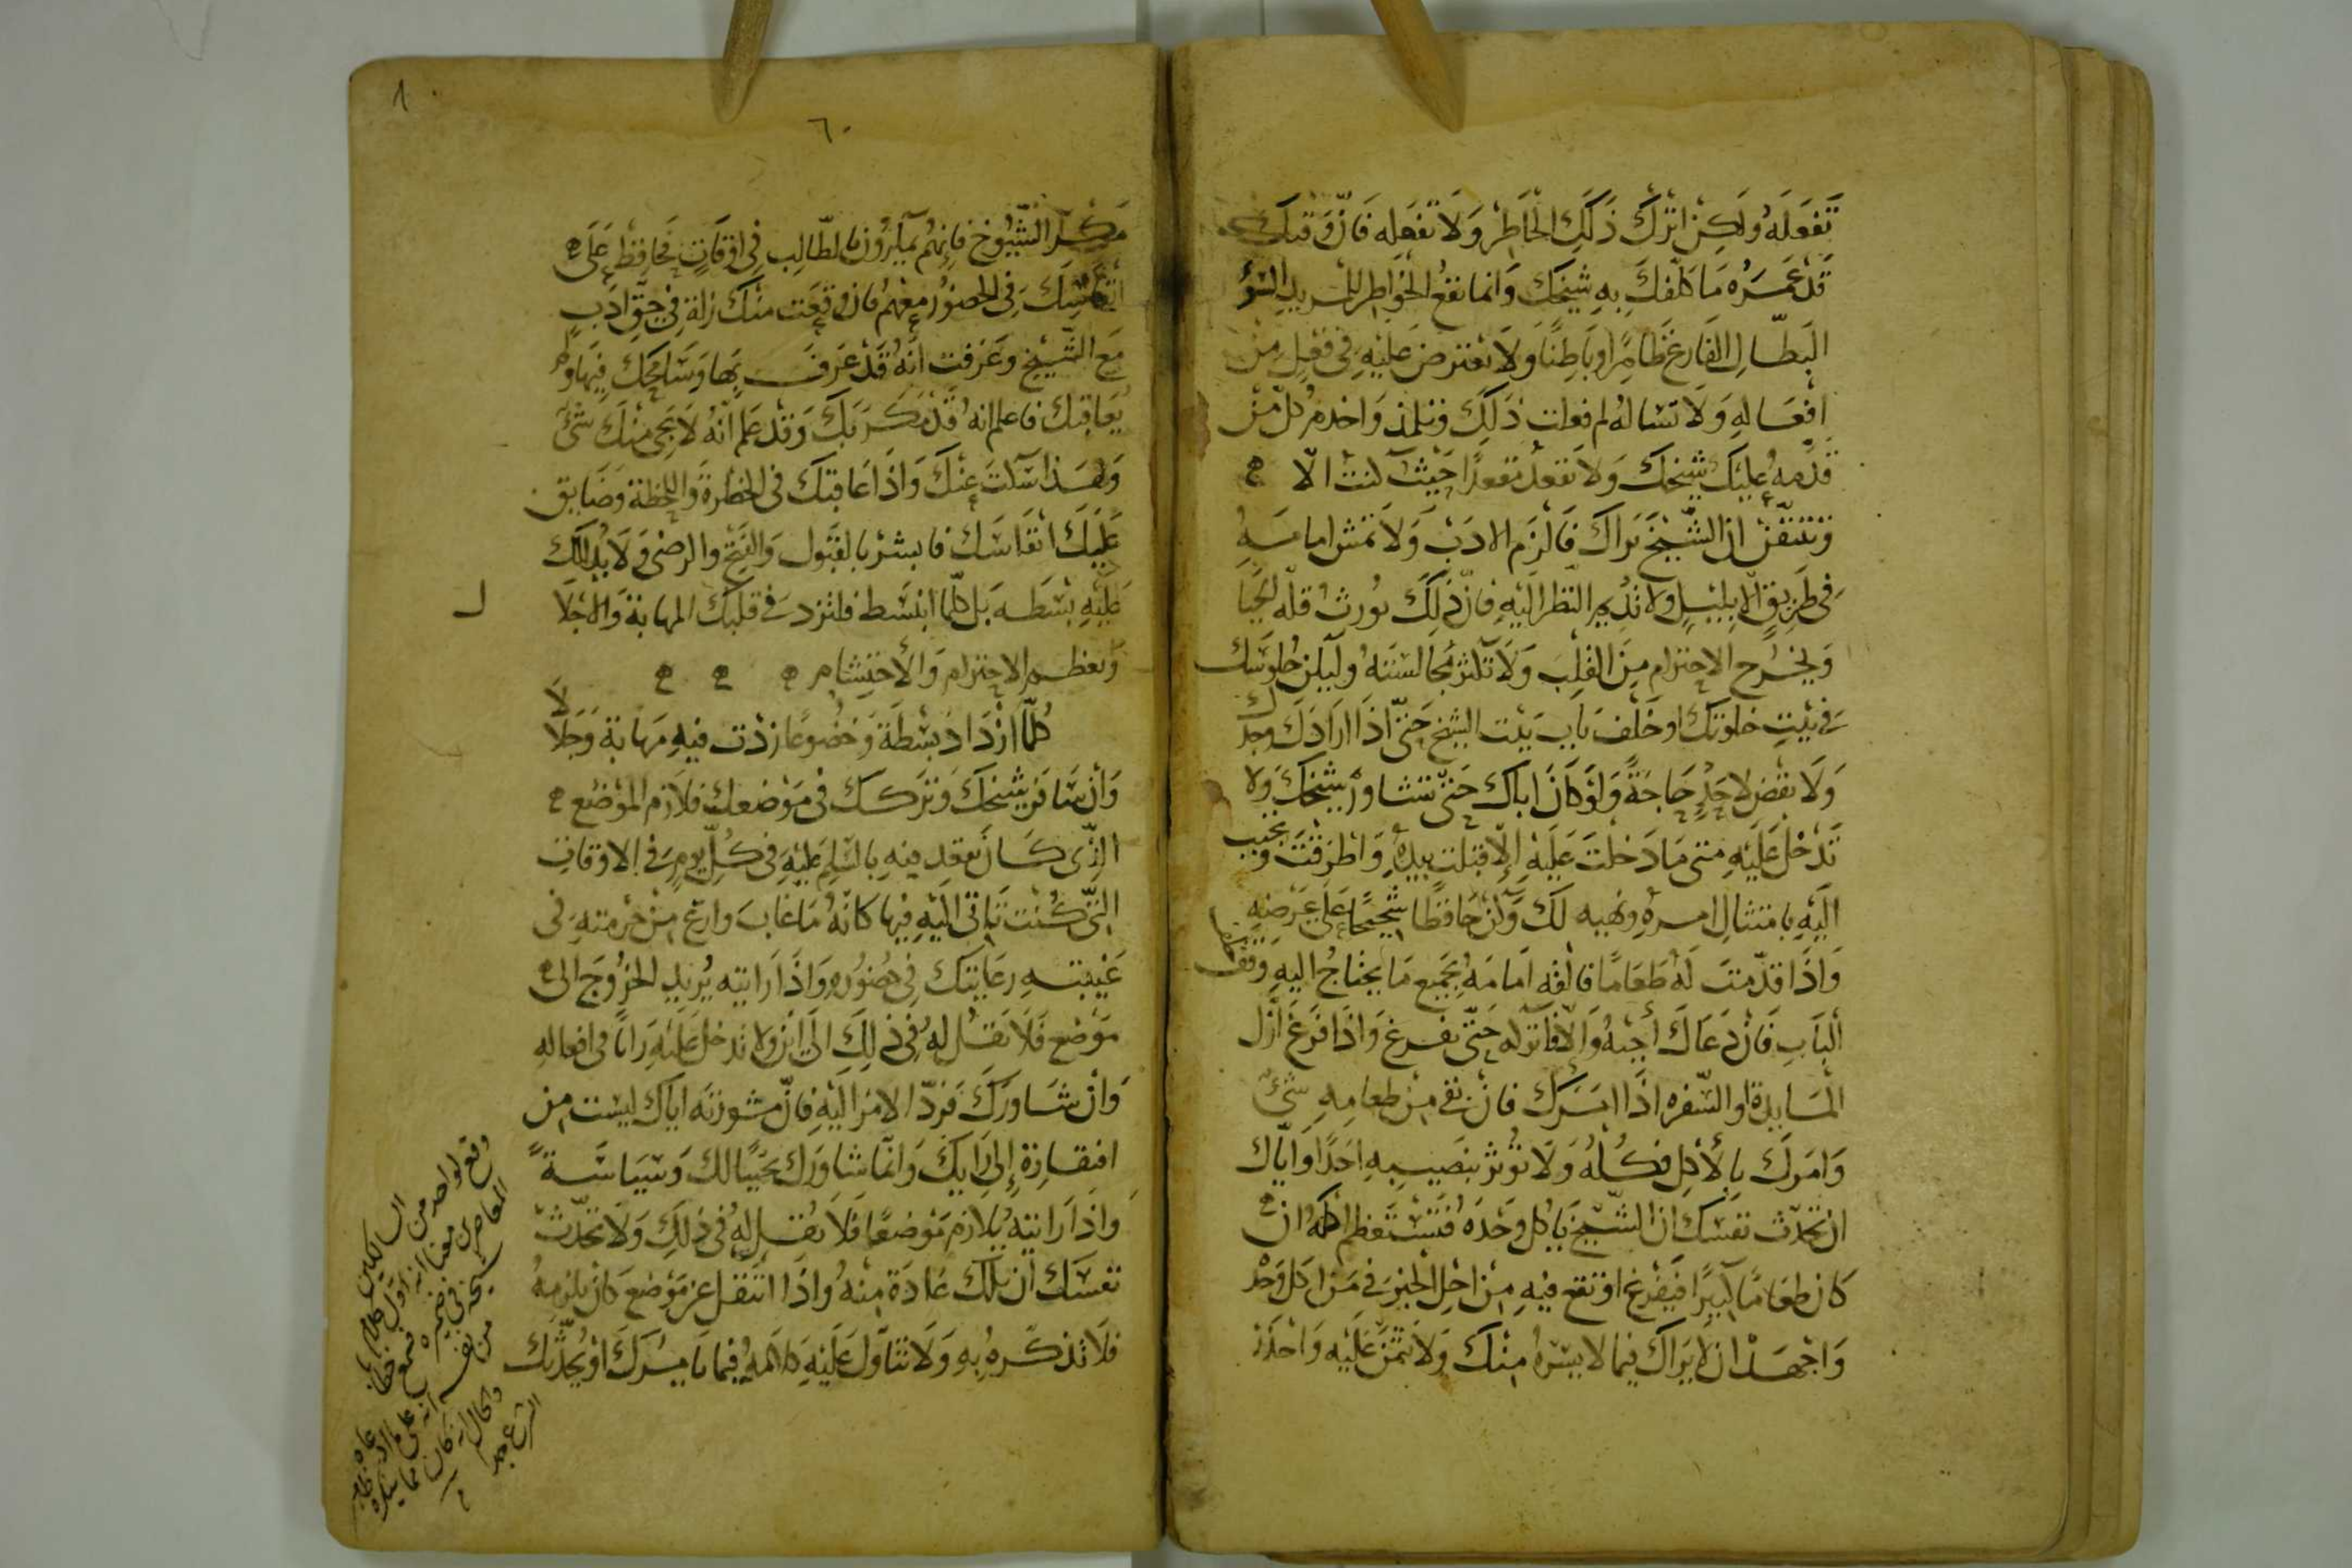 تَفعَلَهُ وَلَكِن اترُكْ ذَلِكَ الخَاطِرْ وَلَا تَفعَله فَانَّ وَقتِكَ
قَدْ عَمَّرَهُ مَا كلّفكَ بِهِ شيخُكَ وَانما تقعُ الخواطِر للمريدِ السُوْ
البَطّالِ الفَارغ ظَاهِرًا وبَاطِنًا وَلَا تعترض عَليْهِ في فِعْلٍ مِنْ
افْعَالِهِ وَلَا تسَالهُ لم فعلت ذَلِكَ وتلمذ وَاخدم كلّ من
قدّمهُ عليكَ شيخك وَلا تقعد مقعدًا حَيْث كنت الّا
وتتيقّنْ ان الشّيْخَ يَراكَ فَالزَم الادَبْ وَلَا تمش امامَه
في طَرِيقٍ الّا بليْلٍ ولا تُديم النّظر اليْهِ فانّ ذلِكَ يُورثُ قلّه الحَيَا
وَيخرُج الاحترام مِنَ القلب وَلَا تكثر مُجالسَتهُ وليَكن جُلوسك
في بيْتِ خلوتك او خَلفَ بَاب بيْت الشيخ حَتّى اذَا ارَادَك وجدك
وَلَا تقضِ لاحَدٍ حَاجَةً وَلَوْ كَانَ اباك حَتّى تشاورَ شيخكَ وَلا
تَدْخل عَليْهِ متى مَا دَخلتَ عَليْهِ إلّا قبّلت يدهِ وَاطرَقتَ وتحبب
اليْهِ بامتثالِ امرهِ ونهيه لك وَكن حَافِظًا شحيحًا عَلى عِرْضِهِ
وَاذَا قدّمتَ لهُ طعَامًا فالقه امَامَهُ بجميع مَا يحتاجُ اليهِ وقف
البَابِ فَان دَعَاكَ أَجبْهُ وَالّا فاتركه حَتّى يفرغ وَاذَا فرغ ازل
المَايِدة او السّفره اذَا امَرك فان بقي مِنْ طعامِهِ شيْ
وَامَركَ بالأكِل فكُلهُ وَلَا تؤثر بنَصيبهِ احدًا وَايّاك
ان تحدّث نفسك ان الشّيْخ يَاكل وحدَه فتستعظِم اكلهُ ان
كان طعامًا كبيرًا فيَفرغ او تقع فيْهِ مِن اجلِ الخبر في من اكل وَحْدَه
وَاجْهد ان لَا يَراك فيما لا يسّرهُ مِنْك وَلَا تتمنَّ عَليْه وَاحْذَر
٨
٦٠
مَكر الشّيُوخِ فانّهُم يمكرون بالطّالِب في اوقاتٍ فَحافِظ عَلى
انفَاسِكَ في الحضور معَهُم فان وقعَت منك زلة في حقّ ادَبٍ
مَع الشّيْخ وعَرَفت انهُ قَدْ عَرف بهَا وَسَامحك فيهَا ولم
يُعاقبك فاعلم انهُ قدْ مكر بك وَقدْ عَلم انّهُ لَا يجي منك شيْ
وَلهَذا سَكت عنك وَاذَا عَاقبَك في الخطرةِ وَاللحظة وضَايق
عَليْك انفاسَك فابشرْ بالقبُول وَالفتحِ والرضى وَلا يُدللك
عَليْهِ بسْطه بل كلّما انبسَط فلتزد في قلبك المهابة وَالاجلا ل
وتعظم الاحترام وَالأحتشام
كُلمّا ازدَاد بسْطَة وَخضُوعًا ازدْت فيهِ مَهابة وَجَلَالَا
وَان سَافر شيْخك وتركك في مَوْضعك فلازم الموْضع
الذّي كَان يقعد فيهِ بالسّلامِ عليْهِ في كُلّ يومٍ في الاوقات
التّي كُنت تَاتي اليْهِ فيها كانهُ مَا غابَ وارع مِن حُرمتهِ في
غيبتهِ رعَايتك في حضُورهِ وَاذَا رَايته يُريدِ الخرُوجَ الى
مَوْضع فَلَا تقُل لهُ في ذلِكَ الى اين ولا تدخل عَليْهِ رَايًا في افعاله
وَان شَاورَك فردّ الامر اليْهِ فانّ مشورته اياك ليست من
افتقارِهِ إلى رَايك وَانمّا شاوَرَك تحبّبًا لك وَسِيَاسَةً
وَاذَا رَايتهِ يُلازم مَوْضعًا فَلَا تقُل لهُ في ذلِكَ وَلَا تحدّث
نفسَك ان تلك عَادَة منهُ وَاذَا انتقل عن مَوْضع كان يلزمهُ
فلَا تذكرهُ بهِ وَلَا تتأوّل عَليْهِ كلَامهُ فيما يَامُرك او يحدّثك
وقع لواحد من السالكين